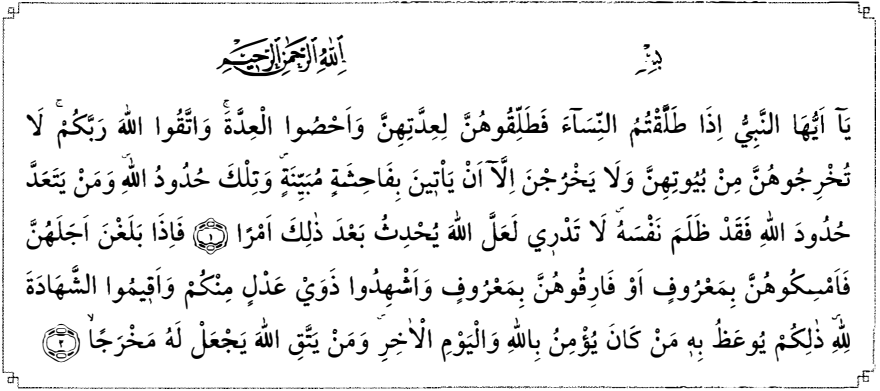 بِسْمِ اللهِ الرَّحْمٰنِ الرَّحِيمِ
يَآ اَيُّهَا النَّبِيُّ اِذَا طَلَّقْتُمُ النِّسَآءَ فَطَلِّقُوهُنَّ لِعِدَّتِهِنَّ وَاَحْصُوا الْعِدَّةَۚ وَاتَّقُوا اللهَ رَبَّكُمْۚ لَا
تُخْرِجُوهُنَّ مِنْ بُيُوتِهِنَّ وَلَا يَخْرُجْنَ اِلَّآ اَنْ يَأْتٖينَ بِفَاحِشَةٍ مُبَيِّنَةٍۜ وَتِلْكَ حُدُودُ اللهِۜ وَمَنْ يَتَعَدَّ
حُدُودَ اللهِ فَقَدْ ظَلَمَ نَفْسَهُۜ لَا تَدْرٖي لَعَلَّ اللهَ يُحْدِثُ بَعْدَ ذٰلِكَ اَمْرًا ﴿١﴾ فَاِذَا بَلَغْنَ اَجَلَهُنَّ
فَاَمْسِكُوهُنَّ بِمَعْرُوفٍ اَوْ فَارِقُوهُنَّ بِمَعْرُوفٍ وَاَشْهِدُوا ذَوَيْ عَدْلٍ مِنْكُمْ وَاَقٖيمُوا الشَّهَادَةَ
لِلّٰهِۜ ذٰلِكُمْ يُوعَظُ بِهٖ مَنْ كَانَ يُؤْمِنُ بِاللهِ وَالْيَوْمِ الْاٰخِرِۜ وَمَنْ يَتَّقِ اللهَ يَجْعَلْ لَهُ مَخْرَجًاۙ ﴿٢﴾